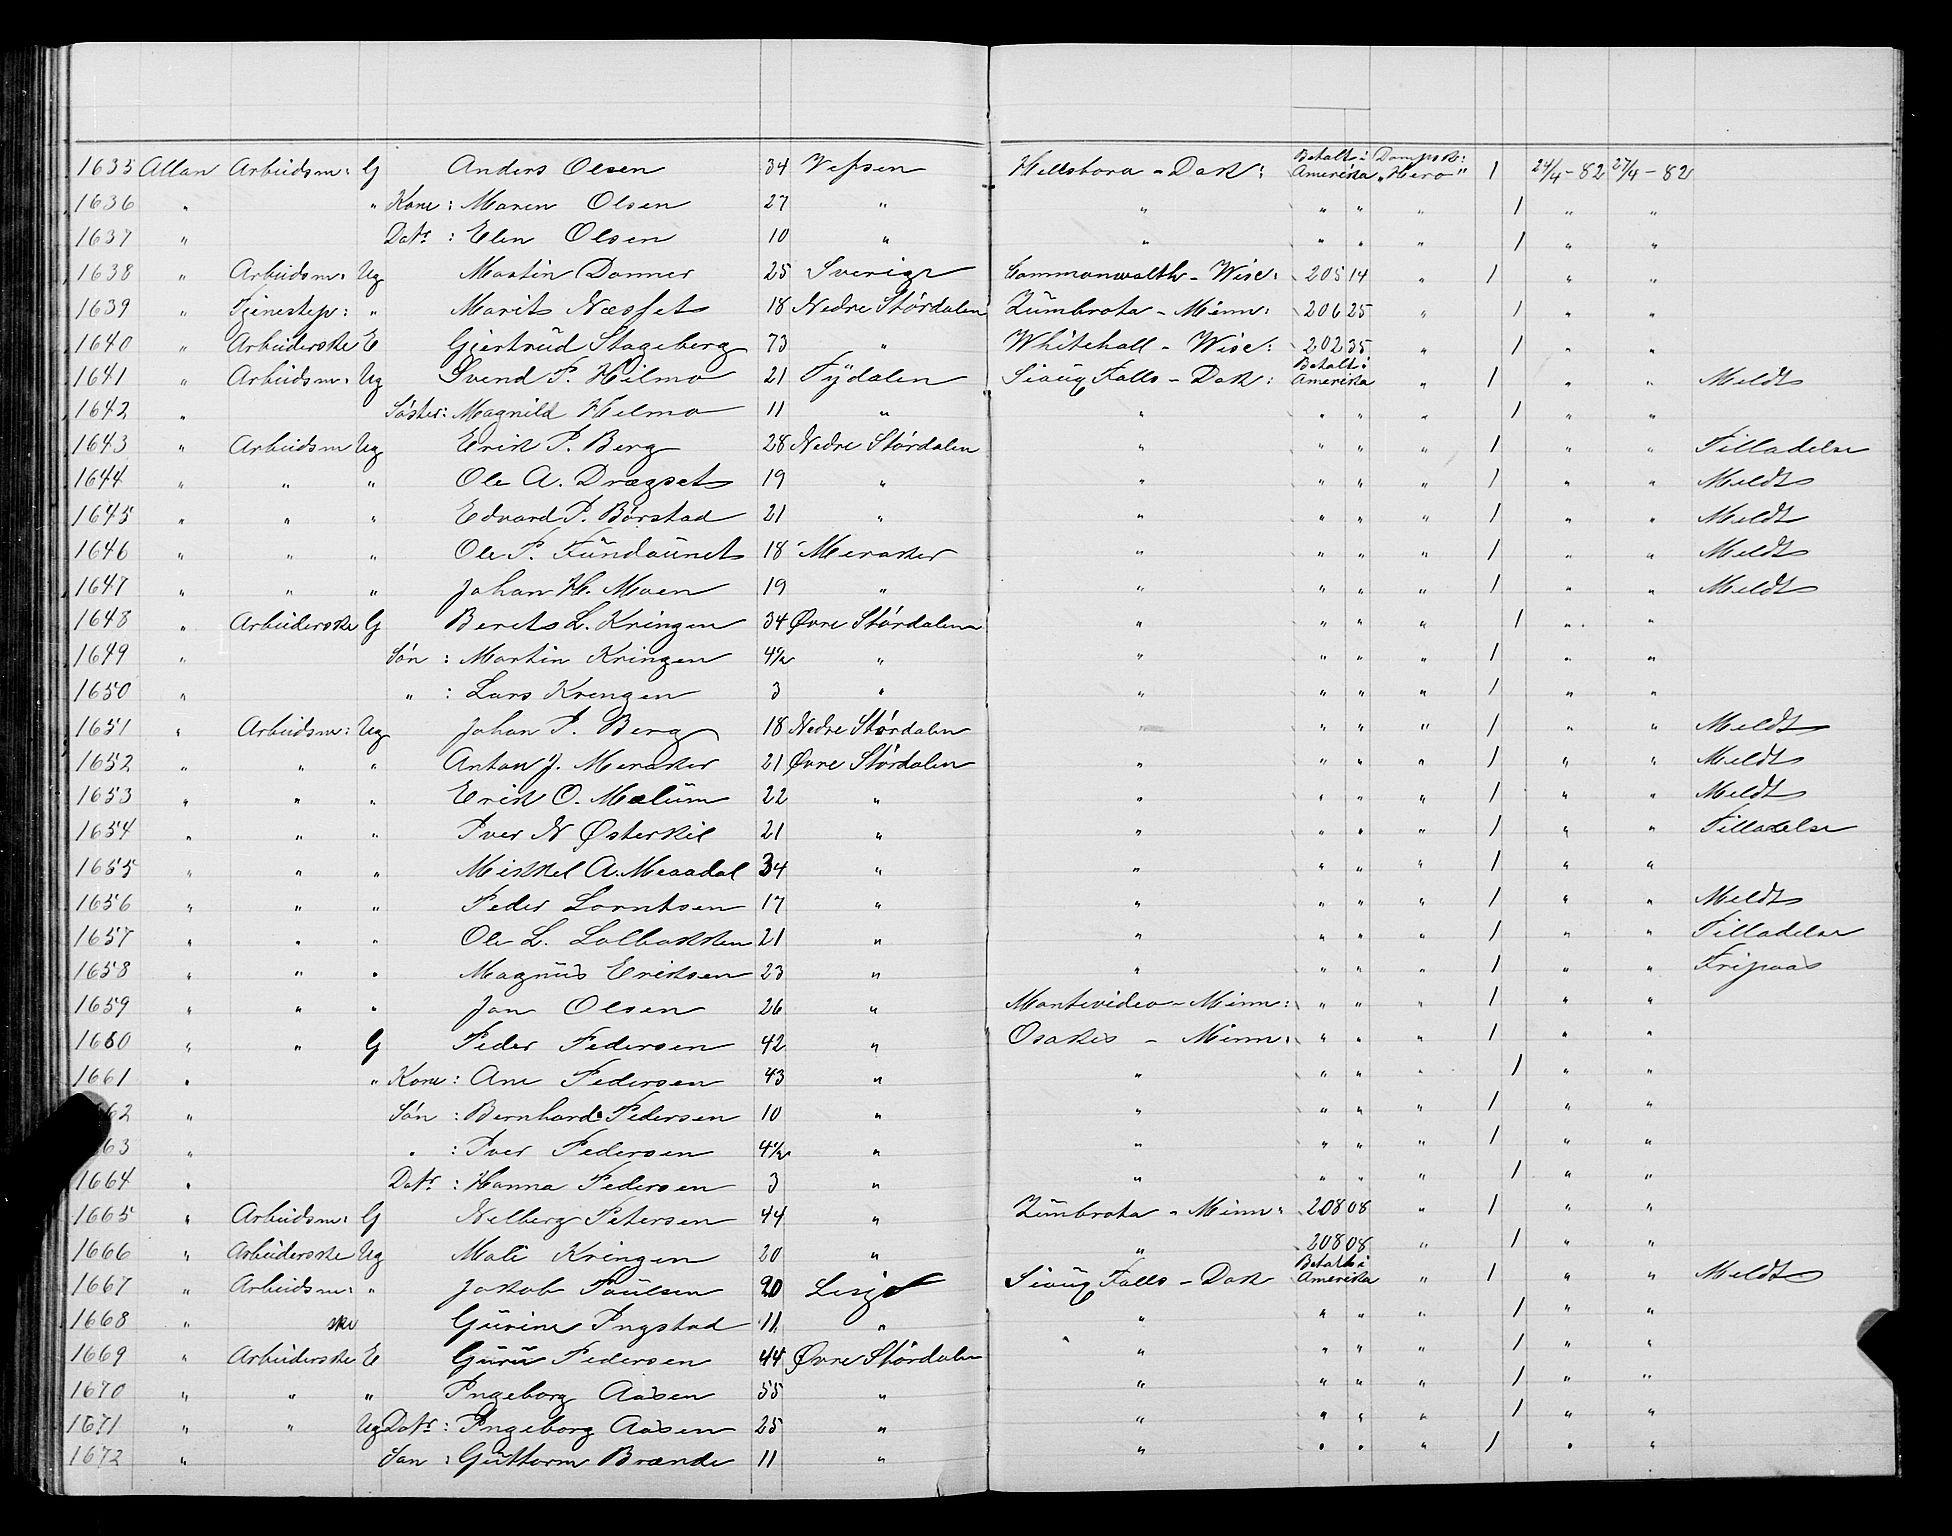 1635 Allan Arbeidsm: G Anders Olsen 34 Vefsen Hillsbora - Dak: Betalt i Amerika Dampsk: "Hero" 1 24/4 - 82 27/4 - 82
1636 " " Kone: Maren Olsen 27 " " " " " 1 " "
1637 " Datr: Elen Olsen 10 " " " " " 1 " "
1638 " Arbeidsm: Ug Martin Donner 25 Sverige Commonwalth - Wisc: 205 14 " 1 " "
1639 " Tjenestep: " Marit Næsset 18 Nedre Stördalen Zumbrota - Minn: 206 25 " 1 " "
1640 " Arbeiderske E Gjertrud Stageberg 73 " Whitehall - Wisc: 202 35 " 1 " "
1641 " Arbeidsm: Ug Svend P. Hilmo 21 Tydalen Sioux Falls - Dak: Betalt i Amerika " 1 " " Meldt
1642 " Söster: Magnild Hilmo 11 " " " " " 1 " "
1643 " Arbeidsm Ug Erik P. Berg 28 Nedre Stördalen " " " " 1 " " Tilladelse
1644 " " " Ole A. Drægset 19 " " " " " 1 " " Meldt
1645 " " " Edvard P. Börstad 21 " " " " " 1 " " Meldt
1646 " " " Ole P. Fundaunet 18 Meraker " " " " 1 " " Meldt
1647 " " " Johan H. Moen 19 " " " " " 1 " " Meldt
1648 " Arbeiderske G Berit L. Kringen 34 Øvre Stördalen " " " " 1 " "
1649 " Sön: Martin Kringen 4½ " " " " " 1 " "
1650 " ": Lars Kringen 3 " " " " " 1 " "
1651 " Arbeidsm: Ug Johan P. Berg 18 Nedre Stördalen " " " " 1 " " Meldt
1652 " " " Anton J. Meraker 21 Øvre Stördalen " " " " 1 " " Meldt
1653 " " " Erik O. Mælum 22 " " " " " 1 " " Meldt
1654 " " " Iver N Østerkil 21 " " " " " 1 " " Tilladelse
1655 " " " Mikkel A. Meaadal 34 " " " " " 1 " "
1656 " " " Peder Lorntsen 17 " " " " " 1 " " Meldt
1657 " " " Ole L. Lølbakken 21 " " " " " 1 " " Tilladelse
1658 " " " Magnus Eriksen 23 " " " " " 1 " " Fripas
1659 " " " Jon Olsen 26 " Montevideo - Minn: " " " 1 " "
1660 " " G Peder Pedersen 42 " Osakis - Minn: " " " 1 " "
1661 " " Kone: Ane Pedersen 43 " " " " " 1 " "
62 " Sön: Bernhard Pedersen 10 " " " " " 1 " "
63 " ": Iver Pedersen 4½ " " " " " 1 " "
1664 " Datr: Hanna Pedersen 3 " " " " " 1 " "
1665 " Arbeidsm: G Nelberg Petersen 44 " Zumbrota - Minn: 208 08 " 1 " "
1666 " Arbeiderske Ug Mali Kringen 20 " " 208 08 " 1 " "
1667 " Arbeidsm: " Jakob Paulsen 20 Lesje Sioux Falls - Dak Betalt i Amerika " 1 " " Meldt
1668 " ske Gurine Ingstad 11 " " " " " 1 " "
1669 " Arbeiderske E Guru Pedersen 44 Øvre Stördalen " " " " 1 " "
1670 " " " Ingeborg Aasen 55 " " " " " 1 " "
1671 " " Ug Datr: Ingeborg Aasen 25 " " " " " 1 " "
1672 " Sön: Guttorm Brænde 11 " " " " " 1 " "